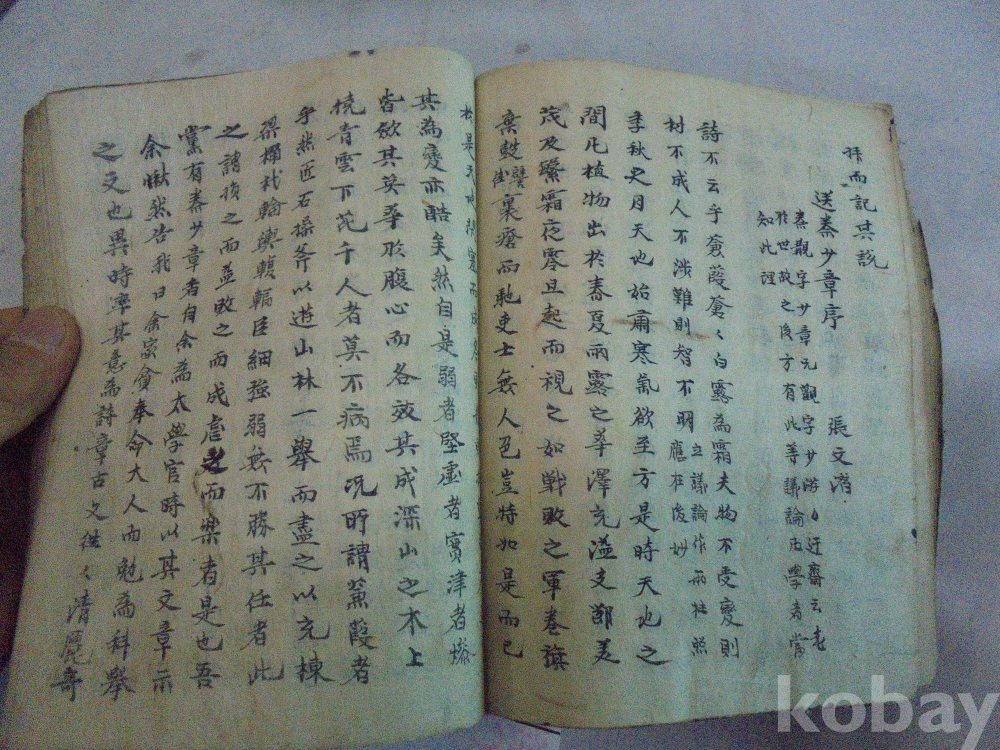 拜而記其說
送秦少章序
張文潛
秦觀字少章兄觀字少游〻迂齋云老
於世故之後方有此等議論凡學者當
知此理
詩不云乎蒹葭蒼〻白露為霜夫物不受變則
材不成人不涉難則智不明立議論作兩柱照應在後妙
季秋之月天地始肅寒氣欲至方是時天地之
間凡植物出於春夏雨露之華澤充溢支節美
茂及繁霜夜零旦起而視之如戰敗之軍卷旗
棄鼓裹瘡而馳吏士無人色豈特如是而已
於是天地閉塞而成
其為變亦酷矣然自是弱者堅虛者實津者燥
皆斂其英華於腹心而各效其成深山之木上
撓青雲下芘千人者莫不病焉况所謂蒹葭者
乎然匠石操斧以遊山林一舉而盡之以充棟
梁桷杙輪輿輹輻巨細強弱無不勝其任者此
之謂損之而益敗之而成虐之而樂者是也吾
黨有秦少章者自余為太學官時以其文章示
余愀然告我曰余家貧奉命大人而勉為科舉
之文也異時率其意為詩章古文往〻清麗奇
kobay